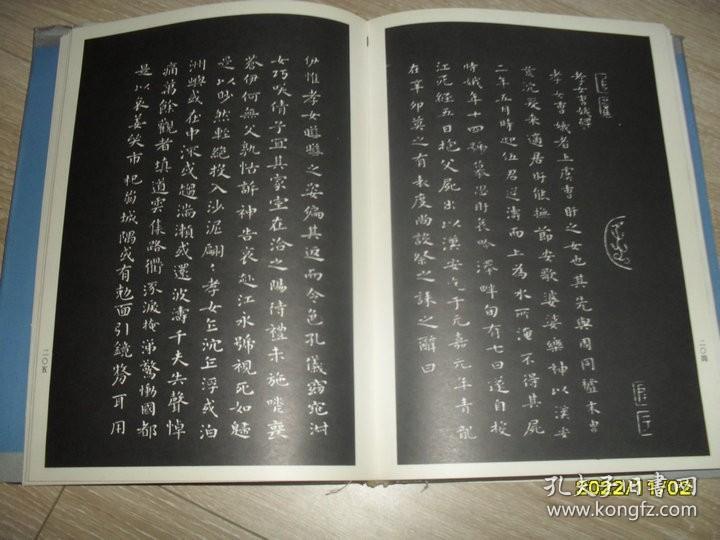 孝女曹娥碑
孝女曹娥者上虞曹盱之女也其先與周同祖末胄
荒沉爰来適居盱能撫節安歌婆娑樂神以漢安
二年五月時迎伍君逆濤而上為水所淹不得其屍
時娥年十四號慕思盱哀吟澤畔旬有七日遂自投
江死經五日抱父屍出以漢安迄于元嘉元年青龍
在辛卯莫之有表度尚設祭之誄之辭曰
二〇四
伊惟孝女曄曄之姿偏其返而令色孔儀窈窕淑
女巧笑倩兮宜其家室在洽之陽待禮未施嗟喪
蒼伊何無父孰怙訴神告哀赴江永號視死如歸
是以眇然輕絕投入沙泥翩〻孝女乍沉乍浮或泊
洲嶼或在中流或趨湍瀨或還波濤千夫失聲悼
痛萬餘觀者填道雲集路衢流淚掩涕驚慟國都
是以哀姜哭市杞崩城隅或有尅面引鏡剺耳用
二〇五
2022/11/02
孔夫子旧书网
www.kongfz.com